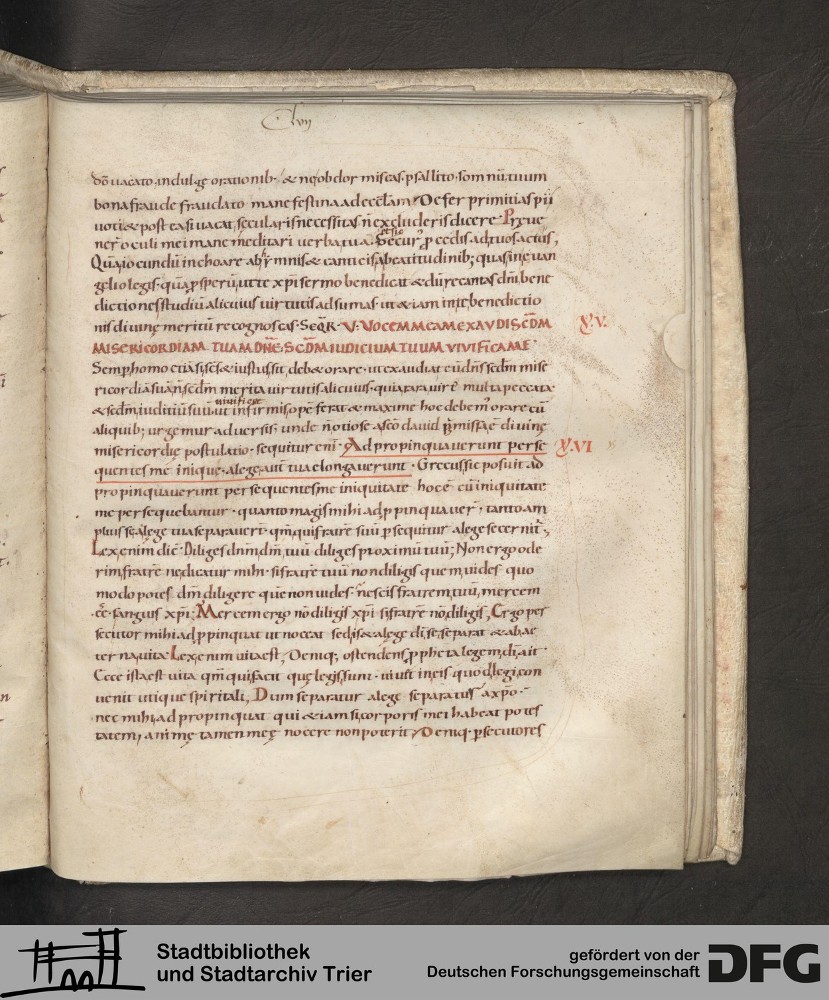 Clvii
dō uacato. indulge orationib; & neob dor miscas. psallito. somnū tuum
bona fraude fraudato mane festina ad eccl̄am. Defer primitias pii
uoti & post ea si uocat secularis necessitas. n̄ excluderis dicere. Preue
ner̄ oculi mei mane meditari uerba tua. Secur' pcedis ad tuos actus,
Quā iocundū inchoare ab hymnis & canticis, a beatitudinib; quas in euan
gelio legis. quā psperū ut te xp̄i sermo benedicat & dū recantas dn̄i bene
dictiones studiū alicuius uirtutis adsumas. ut & iam in te benedictio
nis diuinę meritū recognoscas. Seq̄R. V. VOCEM MEAM EXAVDI SCDM
MISERICORDIAM TUAM DNE. SCDM IUDICIUM TUUM VIVIFICA ME. V. V.
Semp homo etiā si sc̄s & iustus sit, deb& orare. ut exaudiat eū dn̄s scdm mise
ricordiā suā n̄ scdm merita uirtutis alicuius. quia rara uirt̄ multa peccata
& scdm iuditiū suū. ut infirmis opē ferat & maxime hoc debem' orare cū
uiuificet
aliquib; urgemur aduersis. unde n̄ otiose a sc̄o dauid p̄missa ē diuinę
misericordię postulatio. sequitur eni. Adpropinquauerunt perse V. VI
quentes me inique. a lege aut̄ tua elongauerunt. Grecus sic posuit ad
propinquauerunt persequentes me iniquitate hoc ē cū iniquitate
me persequebantur. quanto magis mihi adppinquauer̄, tanto am
plius se a lege tua separauert̄. qm̄ qui fratrē suū psequitur a lege secernit,
Lex enim dic̄. Diliges dn̄m dm̄ tuū diliges proximū tuū; Non ergo ode
rim fratrē ne dicatur mihi. si fratrē tuū non diligis quem uides quo
modo potes dm̄ diligere quē non uides. nescis fratrem tuū, mercem
eē. sanguis xp̄i. Mercem ergo nō diligis xp̄i si fratrē nō diligis, Ergo per
secutor mihi adppinquat ut noceat sed is & a lege di se separat & ab ae
terna uita. Lex enim uita est, Deniq; ostendens ppheta legem di ait.
Ecce ista est uita qm̄ qui facit quę legis sunt. uiuit in eis quod legi con
uenit utique spiritali, Dum separatur a lege separatus a xp̄o.
nec mihi adpropinquat qui & iam si corporis mei habeat potes
tatem, animę tamen meę nocere non poterit. Deniq. psecutores
Stadtbibliothek
und Stadtarchiv Trier
gefördert von der
Deutschen Forschungsgemeinschaft
DFG